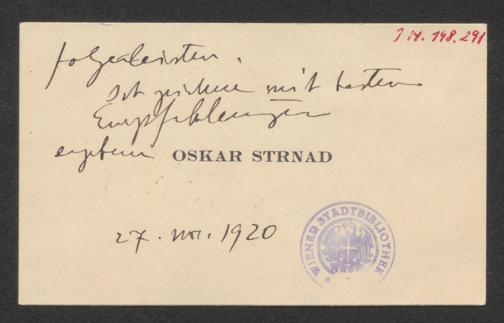 J.N. 148.291
folgeleisten.
Ich zeichne mit besten
Empfehlungen
ergebenst OSKAR STRNAD
27. Nov. 1920
WIENER STADTBIBLIOTHEK